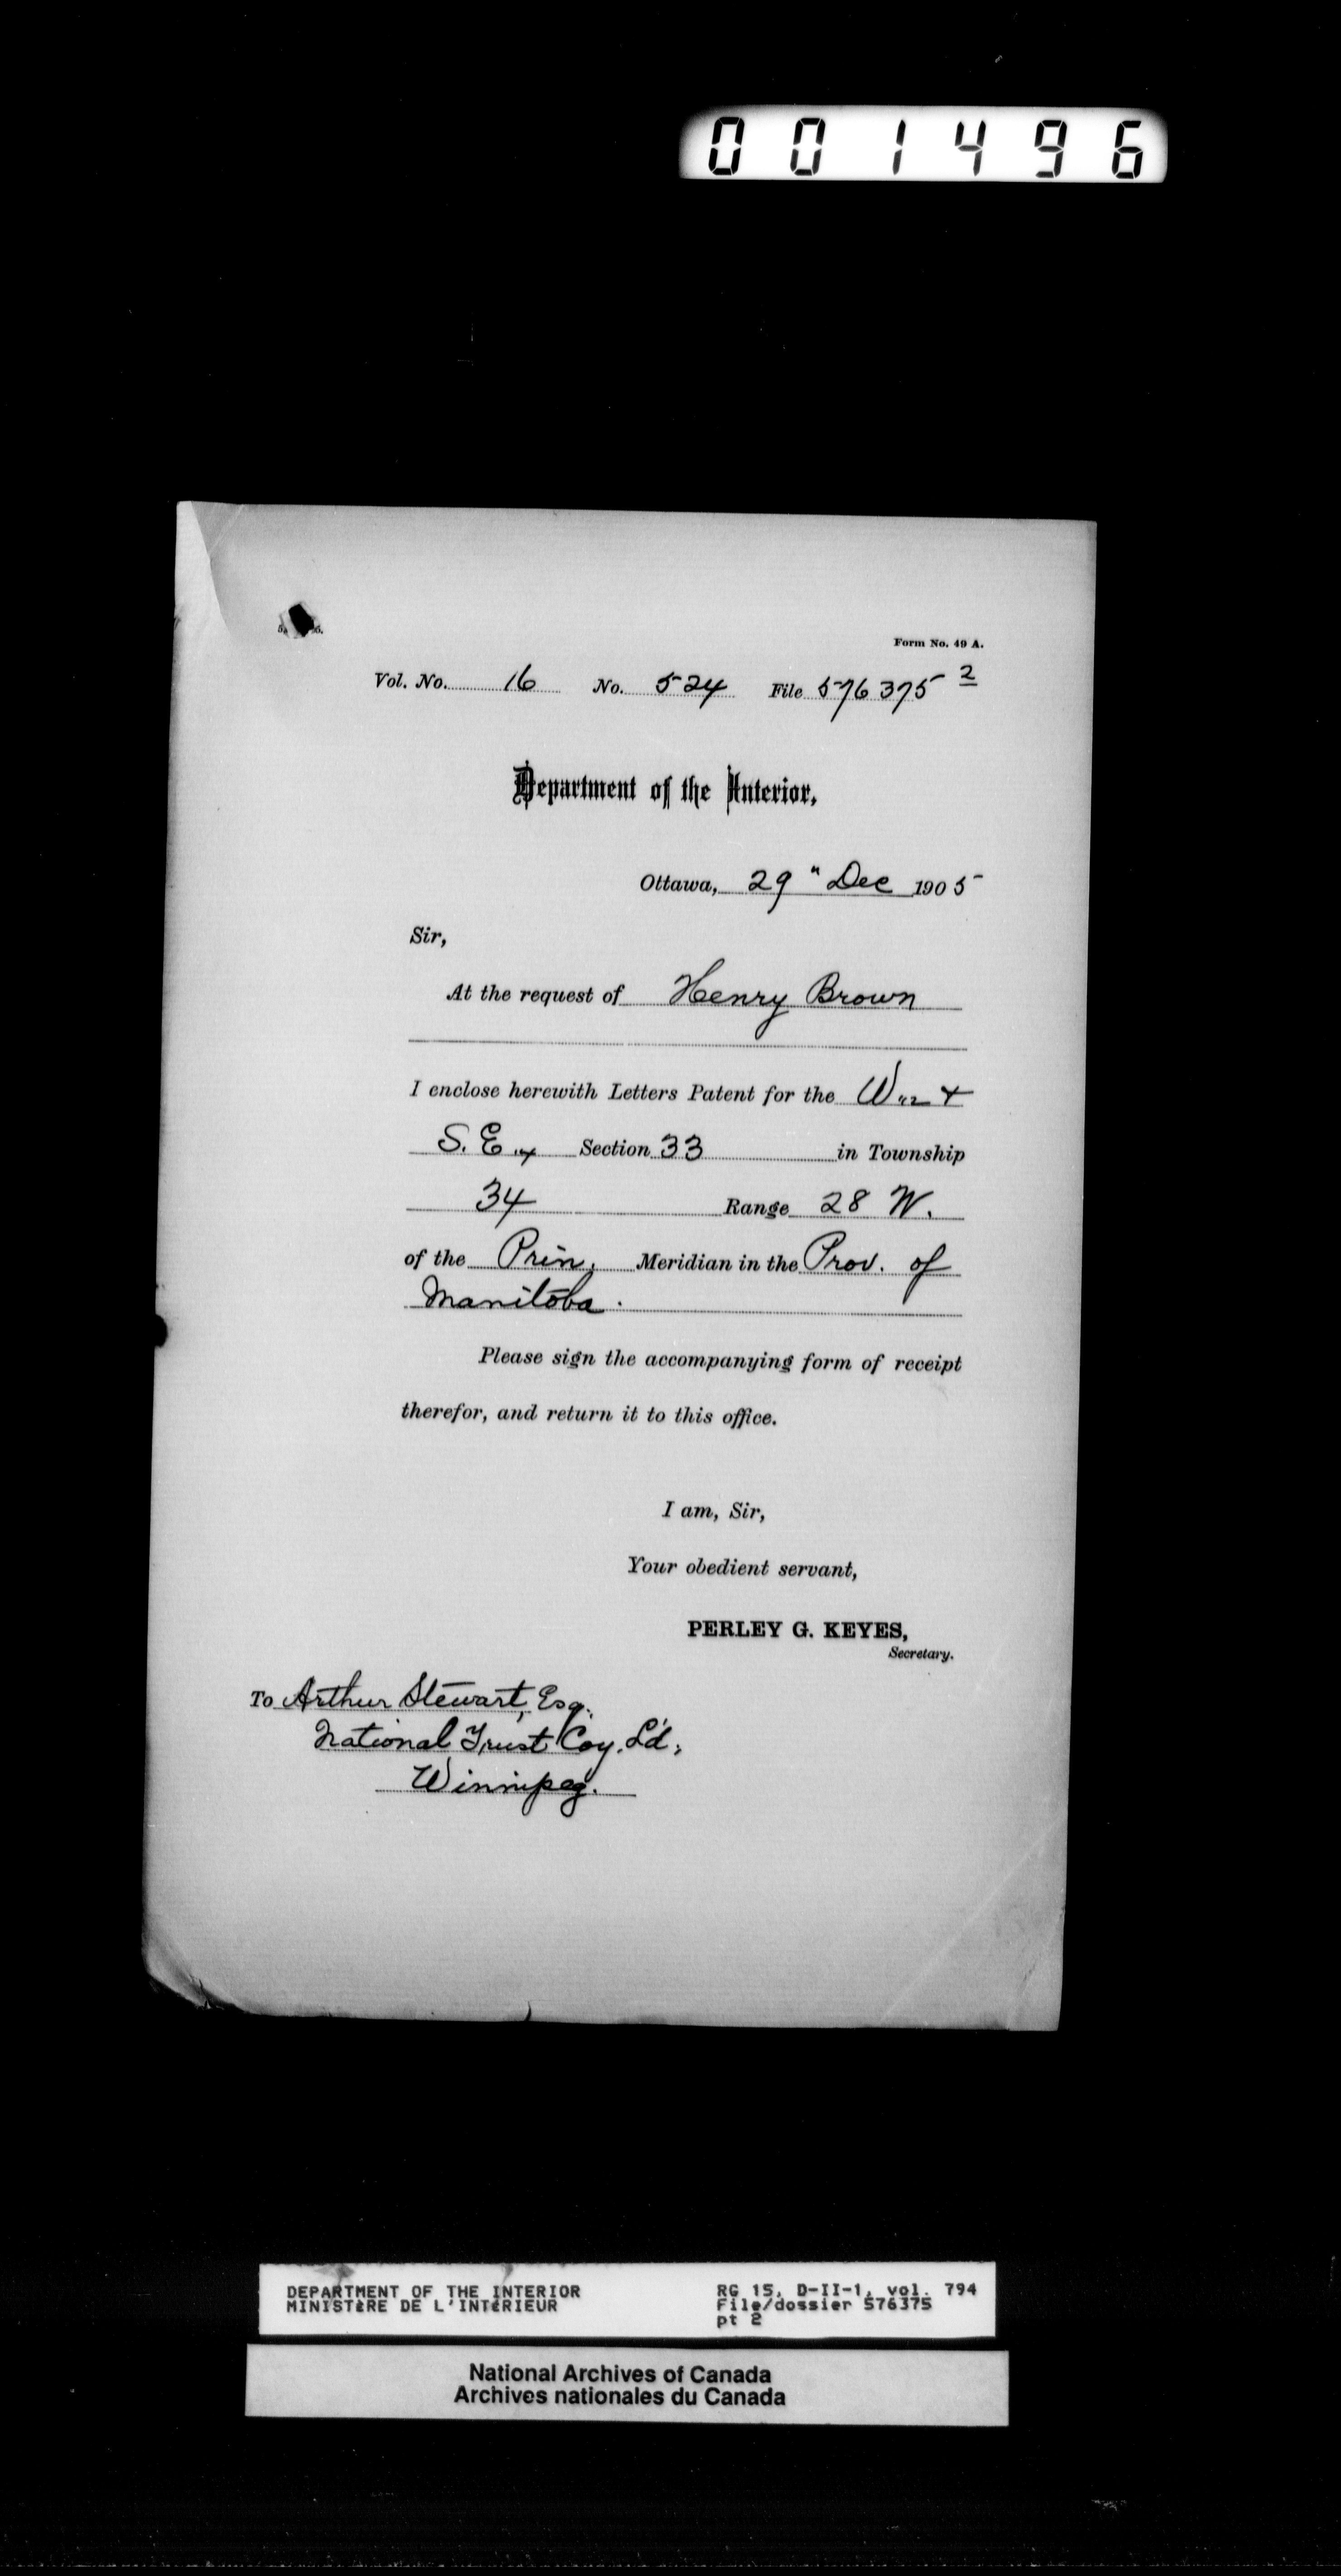 001496
Form No. 49 A.
Vol. No. 16 No. 524 File 576375 2
Department of the Interior,
Ottawa, 29" Dec 1905
Sir,
At the request of Henry Brown
I enclose herewith Letters Patent for the W 1/2 &
S. E. 1/4 Section 33 in Township
34 Range 28 W.
of the Prin. Meridian in the Prov. of
Manitoba.
Please sign the accompanying form of receipt
therefor, and return it to this office.
I am, Sir,
Your obedient servant,
PERLEY G. KEYES,
Secretary.
To Arthur Stewart, Esq.
National Trust Coy. L'd,
Winnipeg.
DEPARTMENT OF THE INTERIOR RG 15, D-II-1, vol. 794
MINISTèRE DE L'INTéRIEUR File/dossier 576375
pt 2
National Archives of Canada
Archives nationales du Canada